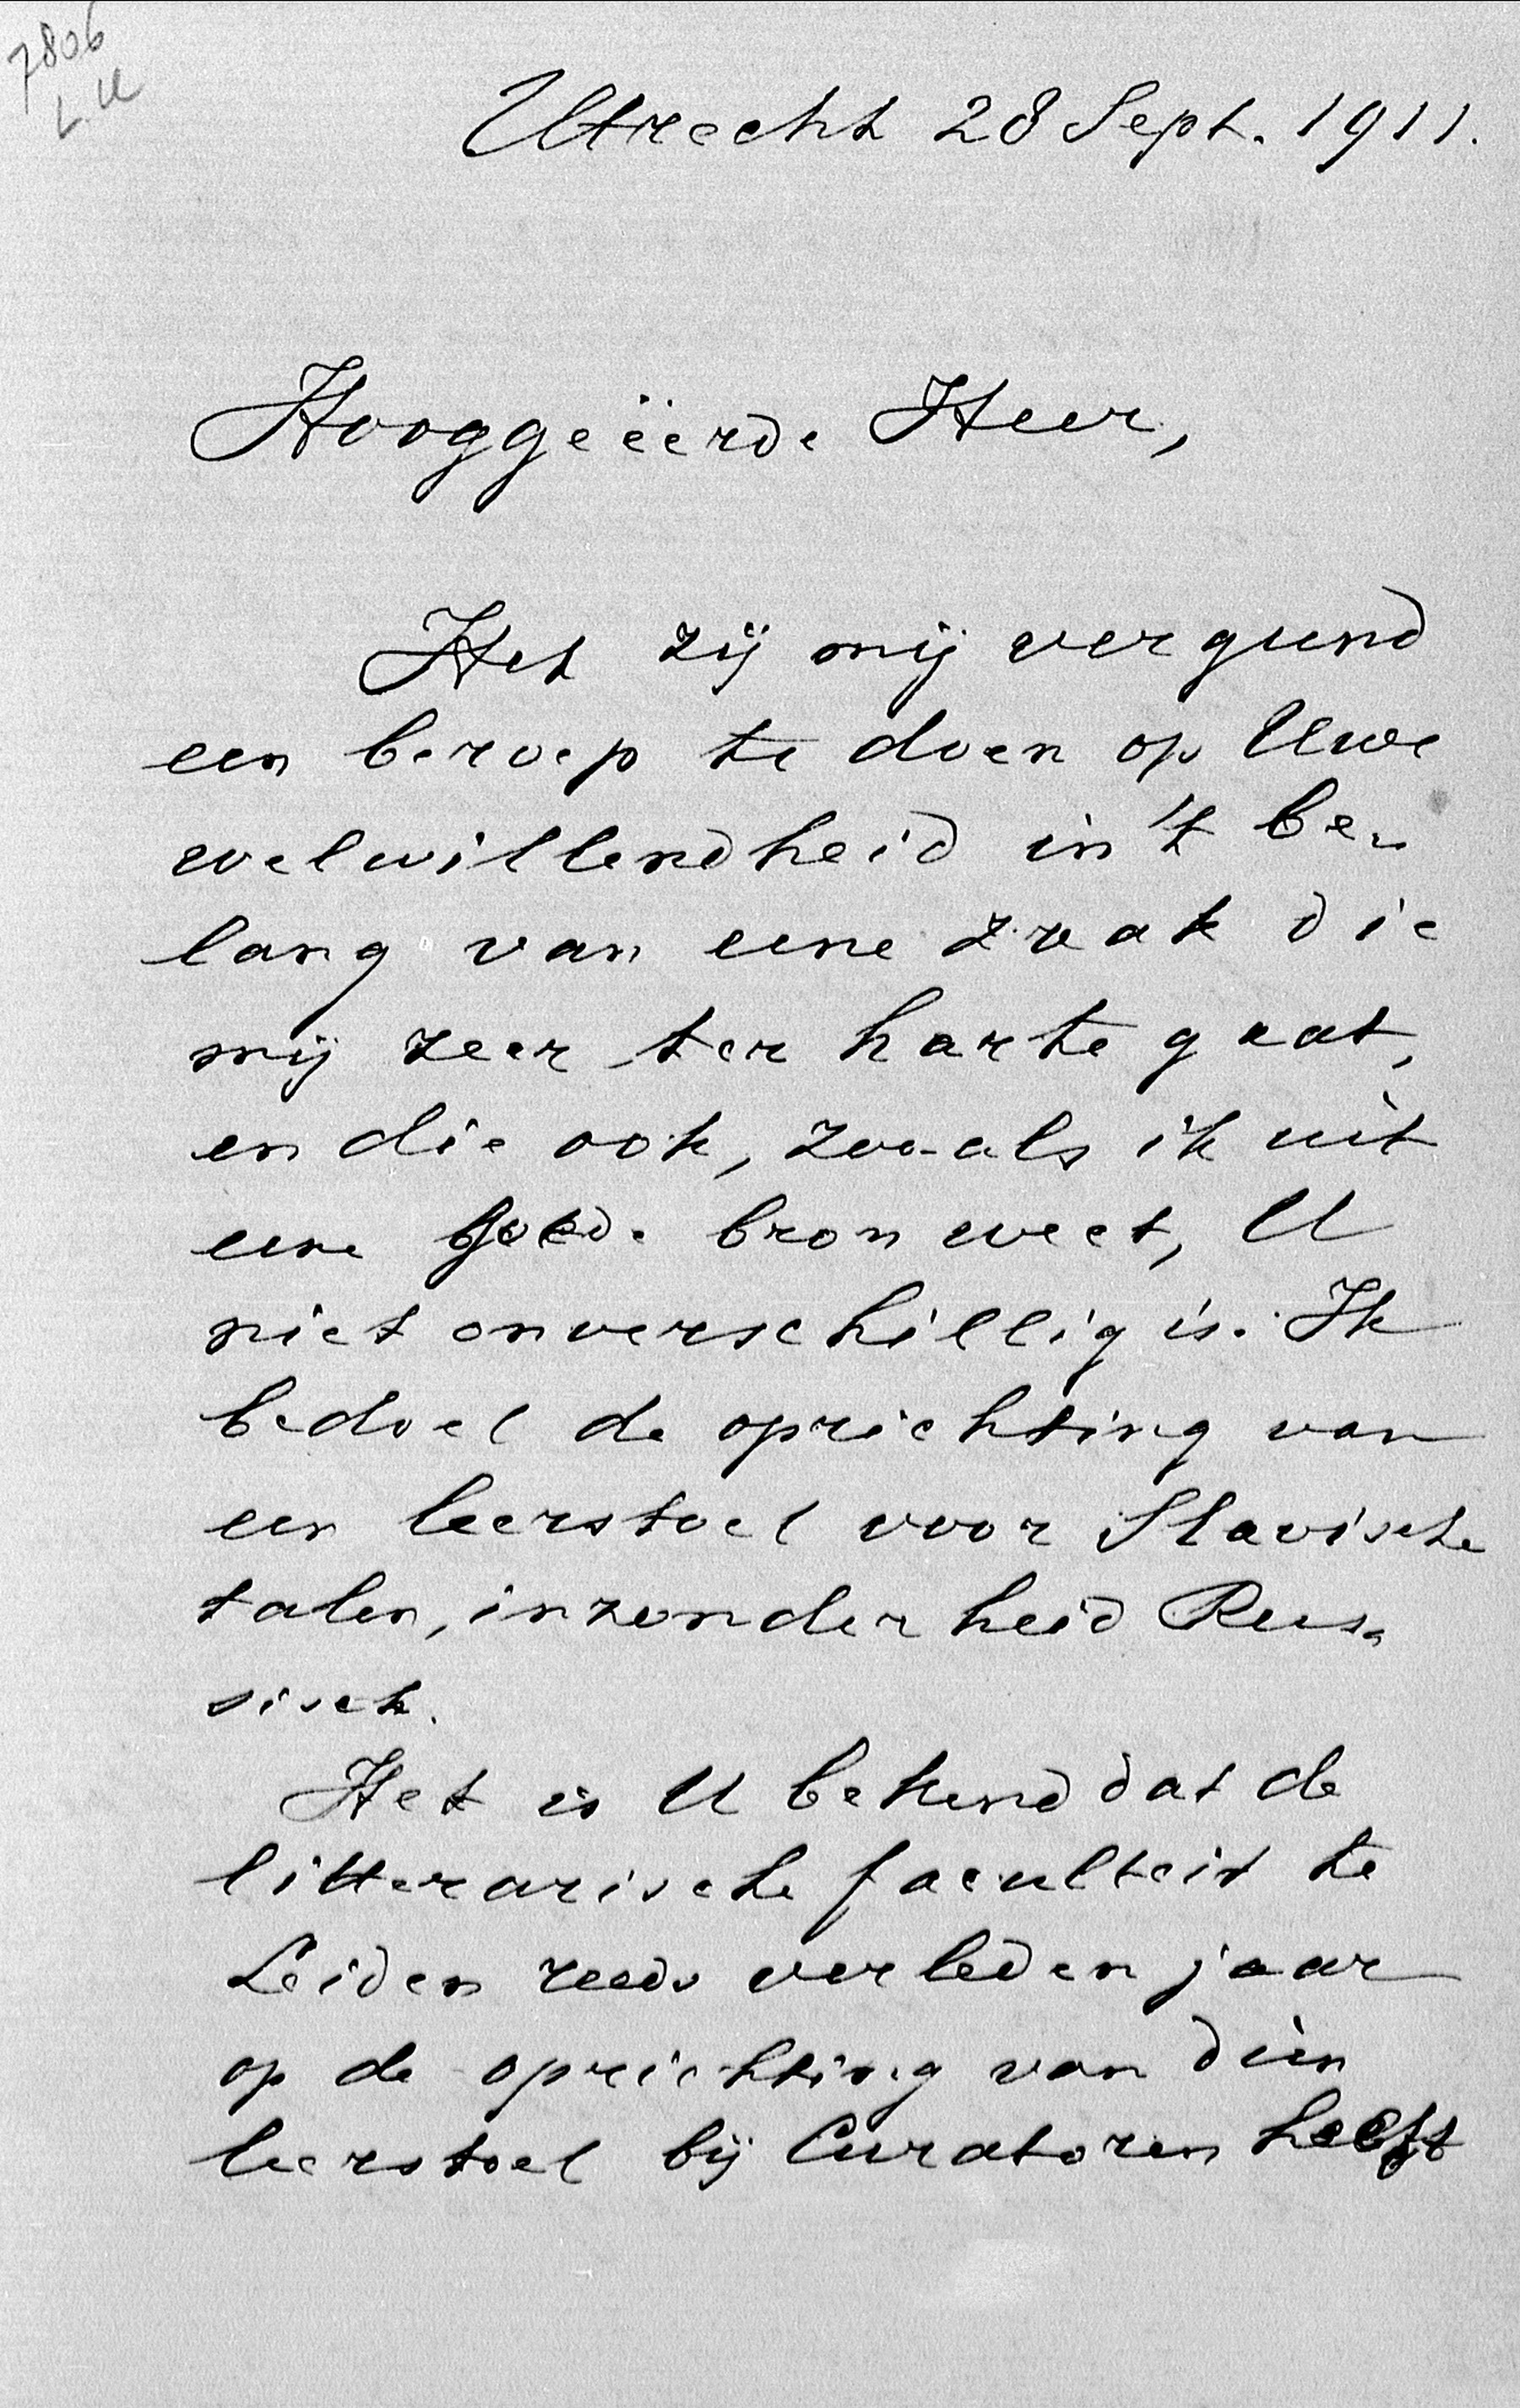 7806
L. U
Utrecht 28 Sept. 1911.
Hooggeëerde Heer,
Het zij mij vergund
een beroep te doen op Uwe
welwillendheid in 't be-
lang van eene zaak die
mij zeer ter harte gaat,
en die ook, zoo als ik uit
eene goede bron weet, U
niet onverschillig is. Ik
bedoel de oprichting van
een leerstoel voor Slavische
talen, inzonderheid Rus-
sisch.
Het is U bekend dat de
litterarische faculteit te
Leiden reeds verleden jaar
op de oprichting van dien
leerstoel bij Curatoren heeft